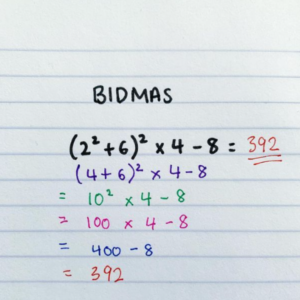 BIDMAS
(2² + 6)² × 4 - 8 = 392
(4 + 6)² × 4 - 8
= 10² × 4 - 8
= 100 × 4 - 8
= 400 - 8
= 392